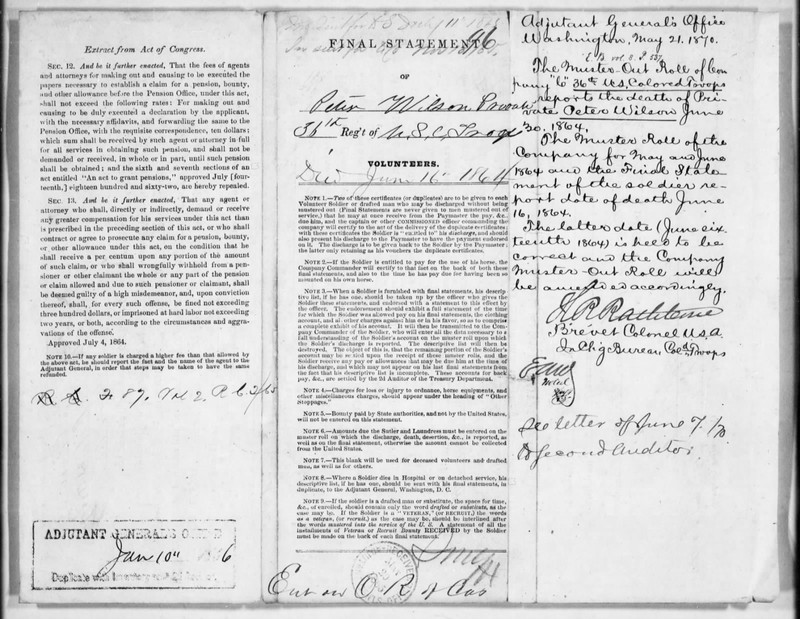 Extract from Act of Congress.
SEC. 12. And be it further enacted, That the fees of agents
and attorneys for making out and causing to be executed the
papers necessary to establish a claim for a pension, bounty,
and other allowance before the Pension Office, under this act,
shall not exceed the following rates: For making out and
causing to be duly executed a declaration by the applicant,
with the necessary affidavits, and forwarding the same to the
Pension Office, with the requisite correspondence, ten dollars:
which sum shall be received by such agent or attorney in full
for all services in obtaining such pension, and shall not be
demanded or received, in whole or in part, until such pension
shall be obtained; and the sixth and seventh sections of an
act entitled "An act to grant pensions," approved July [four-
teenth,] eighteen hundred and sixty-two, are hereby repealed.
SEC. 13. And be it further enacted, That any agent or
attorney who shall, directly or indirectly, demand or receive
any greater compensation for his services under this act than
is prescribed in the preceding section of this act, or who shall
contract or agree to prosecute any claim for a pension, bounty,
or other allowance under this act, on the condition that he
shall receive a per centum upon any portion of the amount
of such claim, or who shall wrongfully withhold from a pen-
sioner or other claimant the whole or any part of the pension
or claim allowed and due to such pensioner or claimant, shall
be deemed guilty of a high misdemeanor, and, upon conviction
thereof, shall, for every such offense, be fined not exceeding
three hundred dollars, or imprisoned at hard labor not exceeding
two years, or both, according to the circumstances and aggra-
vations of the offense.
Approved July 4, 1864.
NOTE 10.—If any soldier is charged a higher fee than that allowed by
the above act, he should report the fact and the name of the agent to the
Adjutant General, in order that steps may be taken to have the same
refunded.
Vol 2
ADJUTANT GENERAL'S OFFICE
Jan 10" 6
Duplicate with
FINAL STATEMENT
OF
Peter Wilson Private
36th Reg't of U.S.C. Troops
VOLUNTEERS.
Died June 16" 1864
NOTE 1.—Two of these certificates (or duplicates) are to be given to each
Volunteer Soldier or drafted man who may be discharged without being
mustered out (Final Statements are never given to men mustered out of
service,) that he may at once receive from the Paymaster the pay, &c.,
due him, and the captain or other COMMISSIONED officer commanding the
company will certify to the act of the delivery of the duplicate certificates;
with these certificates the Soldier is "entitled to" his discharge, and should
also present his discharge to the Paymaster to have the payment endorsed
on it. The discharge is to be given back to the Soldier by the Paymaster
the latter only retaining as his vouchers the duplicate certificates.
NOTE 2.—If the Soldier is entitled to pay for the use of his horse, the
Company Commander will certify to that fact on the back of both these
final statements, and also to the time he has pay due for having been so
mounted on his own horse.
NOTE 3.—When a Soldier is furnished with final statements, his descrip-
tive list, if he has one, should be taken up by the officer who gives the
Soldier these statements, and endorsed with a statement to this effect by
the officer. The endorsement should exhibit a full statement of the time
for which the Soldier was allowed pay on his final statements, the clothing
account, and all other charges against him or in his favor, so as to present
a complete exhibit of his account. It will then be transmitted to the Com-
pany Commander of the Soldier, who will enter all the data necessary to a
full understanding of the Soldier's account on the muster roll upon which
the Soldier's discharge is reported. The descriptive list will then be
destroyed. The object of this is, that the remaining portion of the Soldier's
account may be settled upon the receipt of these muster rolls, and the
Soldier receive any pay or allowances that may be due him at the time of
his discharge, and which may not appear on his last final statements from
the fact that his descriptive list is incomplete. These accounts for back
pay, &c., are settled by the 2d Auditor of the Treasury Department.
NOTE 4.—Charges for loss or injury to ordnance, horse equipments, and
other miscellaneous charges, should appear under the heading of "Other
Stoppages."
NOTE 5.—Bounty paid by State authorities, and not by the United States,
will not be entered on this statement.
NOTE 6.—Amounts due the Sutler and Laundress must be entered on the
muster roll on which the discharge, death, desertion, &c., is reported, as
well as on the final statement, otherwise the amount cannot be collected
from the United States.
NOTE 7.—This blank will be used for deceased volunteers and drafted
men, as well as for others.
NOTE 8.—Where a Soldier dies in Hospital or on detached service, his
descriptive list, if he has one, should be sent with his final statements, in
duplicate, to the Adjutant General, Washington, D. C.
NOTE 9.—If the soldier is a drafted man or substitute, the space for time,
&c., of enrolled, should contain only the word drafted or substitute, as the
case may be. If the Soldier is a "VETERAN," (or RECRUIT,) the words
as a veteran, (or recruit,) as the case may be, should be interlined after
the words mustered into the service of the U. S. A statement of all the
installments of Veteran or Recruit Bounty RECEIVED by the Soldier
must be made on the back of each final statement.
RECEIVED
Ent on O. R. of Cas
Adjutant General's Office
Washington, May 21. 1870.
The Muster-Out Roll of Com
pany "C" 36th U.S. Colored Troops
reports the death of Pri-
vate Peter Wilson June
30. 1864.
The Muster Roll of the
Company for May and June
1864 and the Final State-
ment of the soldier re-
port date of death June
16, 1864.
The latter date (June six-
teenth 1864) is held to be
correct and the Company
Muster-Out Roll will
be amended accordingly.
Brevet Colonel U.S.A.
In Chg Bureau Col'd Troops
Noted
See letter of June 7. 70
to Second Auditor.